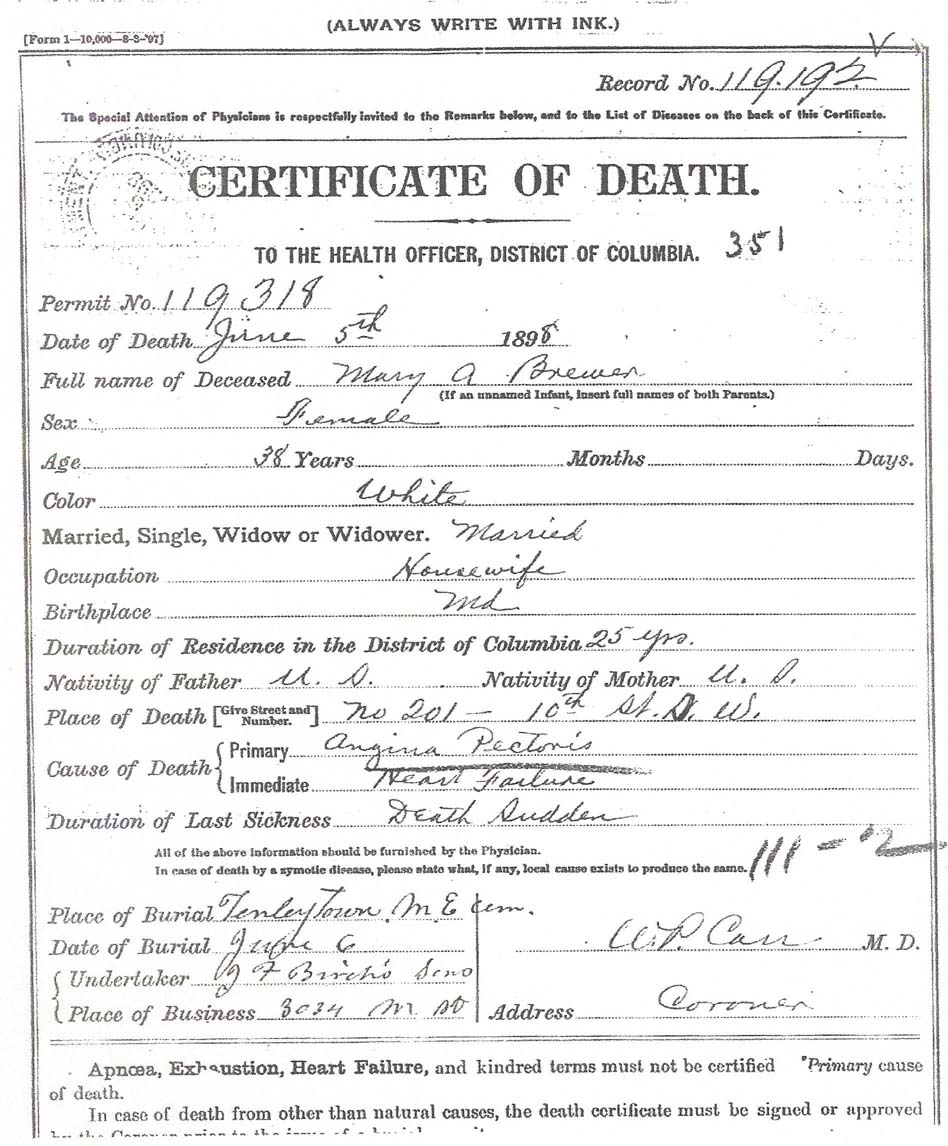 (ALWAYS WRITE WITH INK.)
[Form 1—10,000—8-3-'97]
Record No. 119.192
The Special Attention of Physicians is respectfully invited to the Remarks below, and to the List of Diseases on the back of this Certificate.
CERTIFICATE OF DEATH.
TO THE HEALTH OFFICER, DISTRICT OF COLUMBIA. 351
Permit No. 119318
Date of Death June 5th 1898
Full name of Deceased Mary A Brewer
(If an unnamed Infant, insert full names of both Parents.)
Sex Female
Age 38 Years Months Days.
Color White
Married, Single, Widow or Widower. Married
Occupation Housewife
Birthplace Md
Duration of Residence in the District of Columbia 25 yrs.
Nativity of Father U. S. Nativity of Mother U. S.
Place of Death [Give Street and Number.] No 201 - 10th St. S. W.
Cause of Death { Primary Angina Pectoris
Immediate Heart Failure
Duration of Last Sickness Death Sudden
All of the above information should be furnished by the Physician.
In case of death by a zymotic disease, please state what, if any, local cause exists to produce the same. 111 - 2
Place of Burial Tenleytown M. E Cem.
Date of Burial June 6 W. P. Carr M. D.
{ Undertaker J F Birch's Sons
Place of Business 3034 M. St Address Coroner
Apnœa, Exhaustion, Heart Failure, and kindred terms must not be certified Primary cause
of death.
In case of death from other than natural causes, the death certificate must be signed or approved